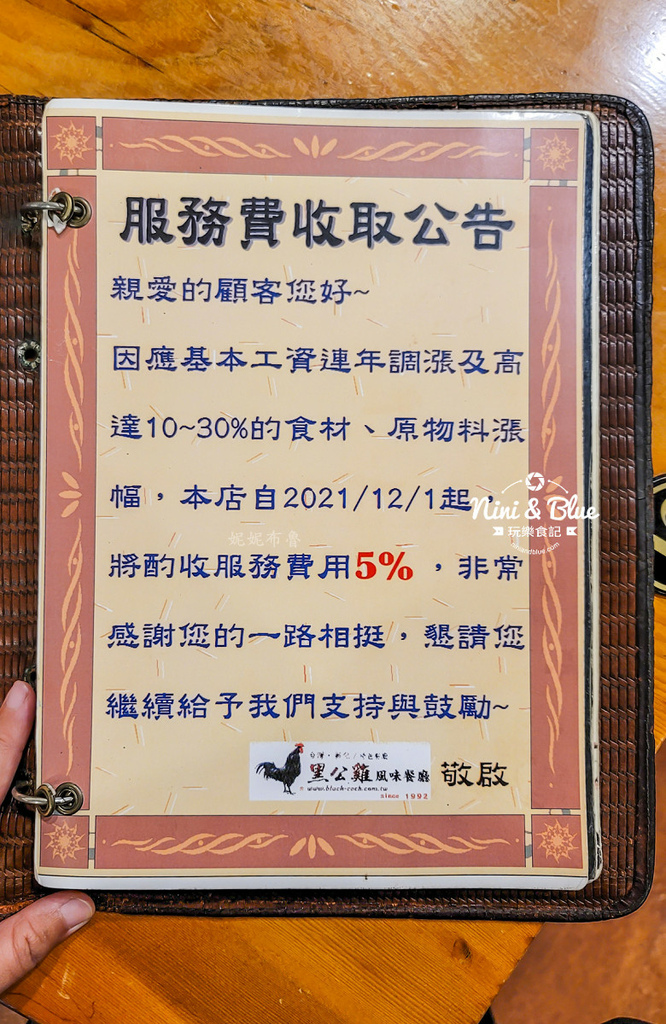 服務費收取公告
親愛的顧客您好~
因應基本工資連年調漲及高
達10~30%的食材、原物料漲
幅，本店自2021/12/1起
將酌收服務費用5%，非常
感謝您的一路相挺，懇請您
繼續給予我們支持與鼓勵~
黑公雞風味餐廳 敬啟
since 1992
Nini & Blue
玩樂食記
妮妮布魯